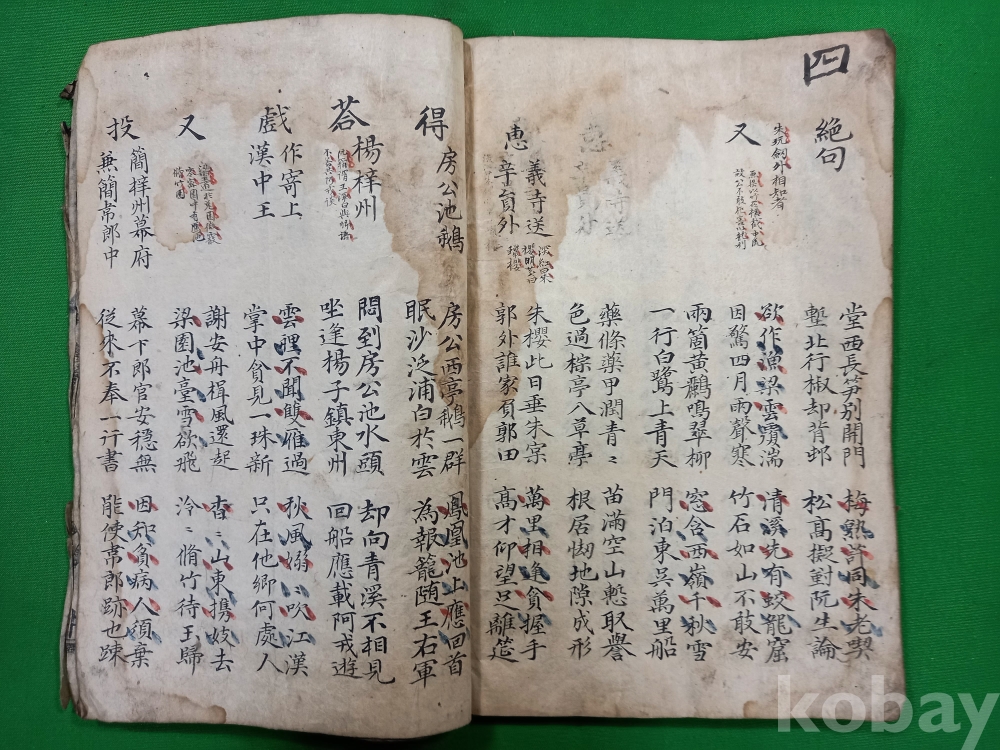 四
絶句
朱阮劒外相知者
堂西長笋別開門 梅熟許同朱老喫
塹北行椒却背邨 松髙擬對阮生論
又
欲作漁梁雲覆湍 清溪先有蛟龍窟
因驚四月雨聲寒 竹石如山不敢安
兩箇黃鸝鳴翠柳 窓含西嶺千秋雪
一行白鷺上青天 門泊東吳萬里船
藥條藥甲潤青〻 苗滿空山慙取譽
色過棕亭八草亭 根居㘭地隙成形
惠義寺送
辛員外
朱櫻此日垂朱宲 萬里相逢貪握手
郭外誰家負郭田 髙才仰望足離筵
得房公池鵝
房公西亭鵝一群 鳳凰池上應回首
眠沙泛浦白於雲 為報籠随王右軍
答楊梓州
悶到房公池水頭 却向青溪不相見
坐逢楊子鎮東州 回船應載阿戎遊
戲作寄上
漢中王
雲裡不聞雙雁過 秋風嫋〻吹江漢
掌中貪見一珠新 只在他鄉何處人
又
謝安舟楫風還起 杳〻山東携妓去
梁園池臺雪欲飛 泠〻脩竹待王歸
投簡梓州幕府
兼簡韋郎中
幕下郎官安穩無 因知貧病人須棄
從來不奉一行書 能使韋郎跡也踈
kobay